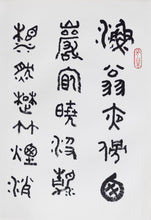 漁翁夜傍西
巖宿曉汲清
湘然楚竹煙消